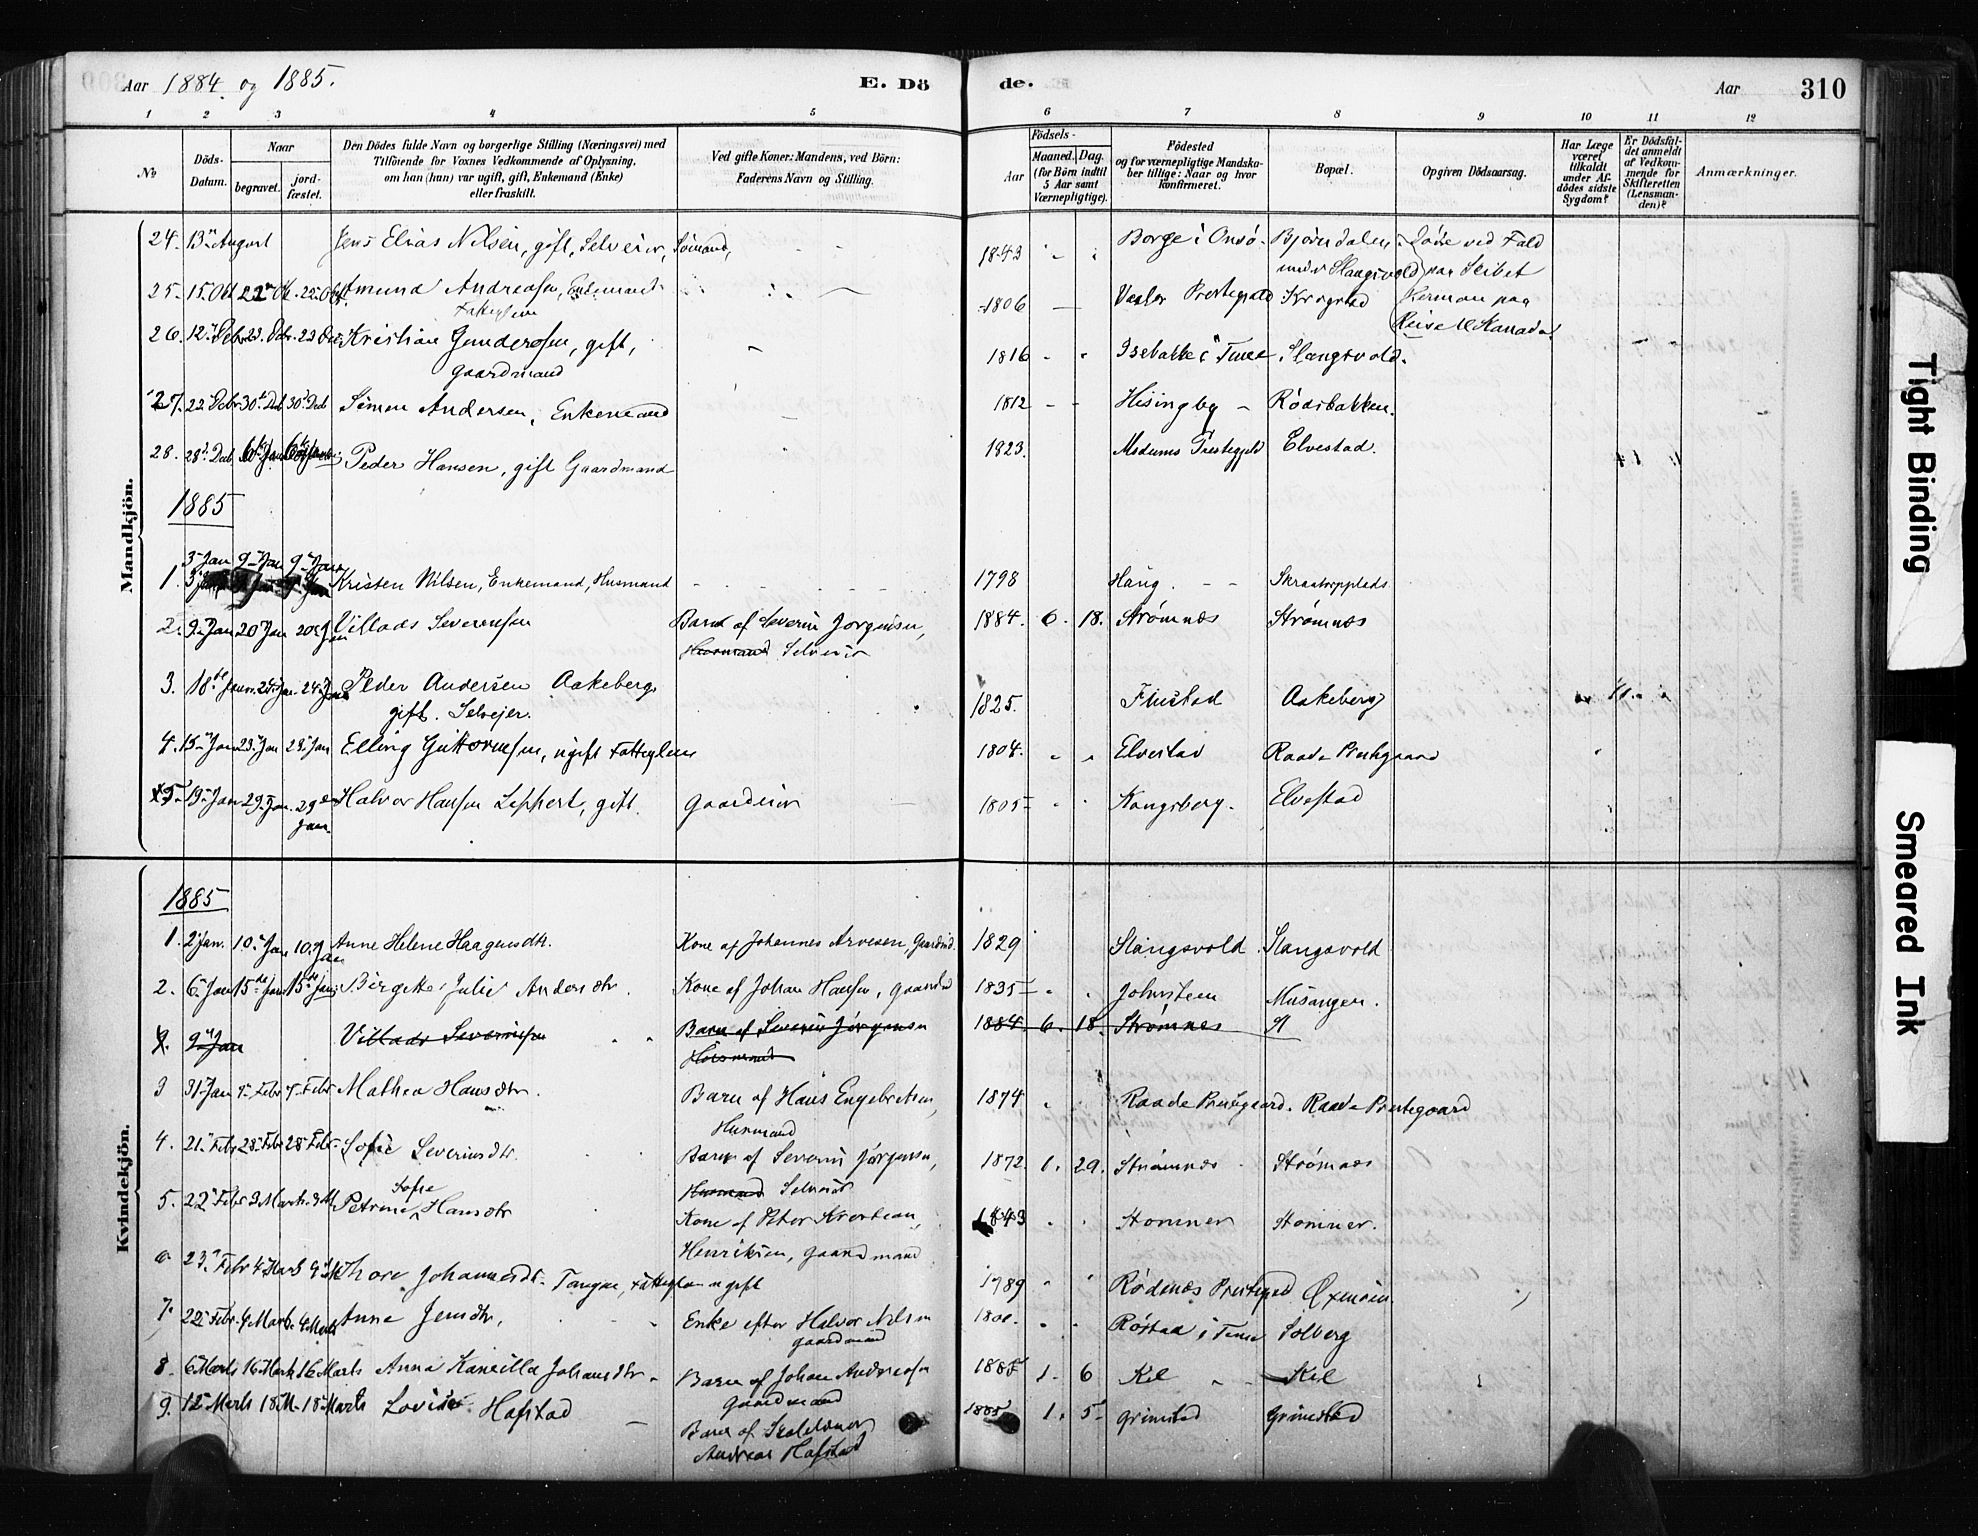 Aar 1884 og 1885.
E. Dö
de.
Aar
310
1 2 3 4 5 6 7 8 9 10 11 12
No
Döds-
Datum.
Naar
begravet.
jord-
fæstet.
Den Dödes fulde Navn og borgerlige Stilling (Næringsvei) med
Tilföiende for Voxnes Vedkommende af Oplysning,
om han (hun) var ugift, gift, Enkemand (Enke)
eller fraskilt.
Ved gifte Koner: Mandens, ved Börn:
Faderens Navn og Stilling.
Födsels-
Aar
Maaned. Dag.
(for Börn indtil
5 Aar samt
Værnepligtige).
Födested
og for værnepligtige Mandska-
ber tillige: Naar og hvor
konfirmeret.
Bopæl.
Opgiven Dödsaarsag.
Har Læge
været
tilkaldt
under Af-
dödes sidste
Sygdom?
Er Dödsfal-
det anmeldt
af Vedkom-
mende for
Skifteretten
(Lensman-
den)?
Anmærkninger.
Mandkjön.
24. 13 August Jens Elias Nilsen, gift, Selveier, Sömand, 1843 Borge i Onsö. Bjørndalen Döde ved Fald
under Slangsvold paa Skibet
25. 15. Okt 22 Ok. 22. Okt Amund Andreasen, Enkemand 1806 Vaaler Prestegjeld Krogstad Herman paa
Fattiglem Reise til Kanada.
26. 12. Debr 23. Debr. 23 Des Kristian Gundersen, gift, 1816 Isebakke i Tune Slangsvold.
Gaardmand
27. 22 Debr 30te Deb 30te Deb Simen Andersen, Enkemand 1812 Hisingby Rödsbakken.
28. 28de Deb 6te Jan Peder Hansen, gift Gaardmand 1823. Modums Prestegjeld Elvestad.
1885
3 Jan 9 Jan 9 Jan
1. Kristen Nilsen, Enkemand, Husmand 1798 Haug. Skraatorpplads
2. 9 Jan 20 Jan 20 Jan Villads Severinsen Barn af Severin Jørgensen, 1884. 6. 18. Strømnæs Strømnæs
Husmand Selveier
3. 18de Jan. 24. Jan. 24. Jan Peder Andersen Aakeberg 1825. Finstad Aakeberg
gift. Selvejer.
4. 15 Jan 23. Jan 23. Jan Elling Guttormsen, ugift Fattiglem 1804. Elvestad Raade Prestgaard
5 19 Jan 29. Jan. 29de Jan. Halvor Hansen Lephert, gift. Gaardeier 1805 Kongsberg. Elvestad
Kvindekjön.
1885
1. 2 Jan. 10. Jan 10. Jan Anne Helene Haagensdtr. Kone af Johannes Arvesen, Gaardmd. 1829 Slangsvold Slangsvold
2. 6. Jan 15de Jan 15de Jan Birgitte Julie Andersdtr. Kone af Johan Hansen, Gaardmd 1835 Johnsteen Musangen.
9 Jan Villads Severinsen Barn af Severin Jørgensen 1884. 6. 18. Strømnes St
Husmand
3 31 Jan 7. Febr 7. Febr Mathea Hansdtr. Barn af Hans Engebretsen, 1874 Raade Prestegaard. Raade Prestegaard
Husmand
4. 21 Febr 28 Febr 28 Febr. Sofie Severinsdtr. Barn af Severin Jørgensen, 1872. 1. 29. Strømnæs Strømnæs
Husmand Selveier
5. 22 Febr 3 Marts. Petrine Sofie Hansdtr Kone af Peter Kristian, 1843 Stomner Stomner.
Henriksen, Gaardmand
6. 23. Febr 4 Marts Thore Johannesdtr. Tangen, Fattiglem ugift 1789 Rødenæs Prestegjeld
7. 22 Febr. 4 Marts. 4 Marts Anne Jensdtr. Enke efter Halvor Nilsen Röstad i Tune Solberg
gaardmand
8. 6 Marts 16 Marts 16 Marts Anna Kamilla Johansdtr. Barn af Johan Andreasen 1885 1. 6 Kil Kil
Gaardmand
9. 12 Marts 18 M. 18 Marts Lovise Hafstad Barn af Skoleholder 1885 1. 5 Grimstad Grimstad
Andreas Hafstad
Tight Binding
Smeared Ink